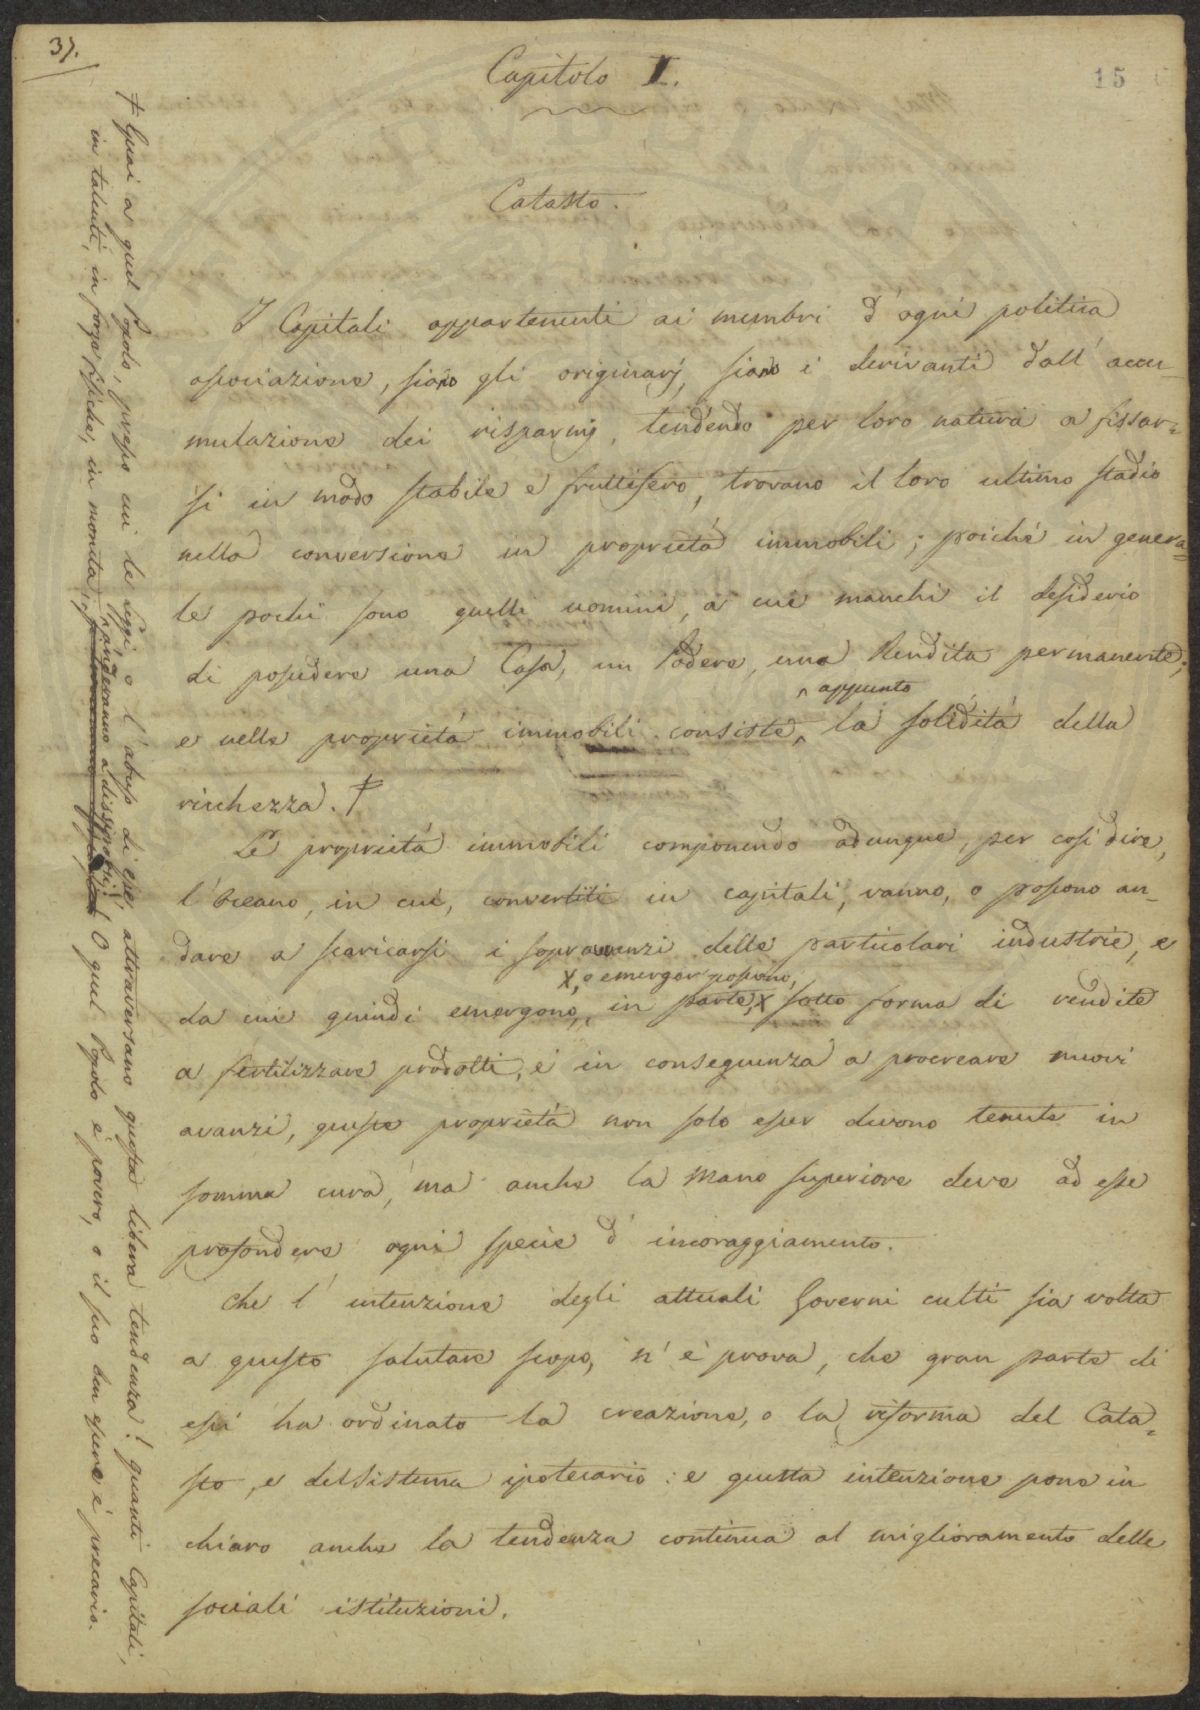 37.
15
Capitolo II.
Catasto.
I Capitali appartenenti ai membri d'ogni politica
associazione, siano gli originarj, siano i derivanti dall'accu-
mulazione dei risparmj, tendendo per loro natura a fissar=
si in modo stabile e fruttifero, trovano il loro ultimo stadio
nella conversione in proprietà immobili; poiché in genera=
le pochi sono quelli uomini, a cui manchi il desiderio
di possedere una Casa, un Podere, una Rendita permanente;
e nelle proprietà immobili consiste, appunto la solidità della
ricchezza. †
Le proprietà immobili componendo adunque, per così dire,
l'Oceano, in cui, convertiti in capitali, vanno, o possono an-
dare a scaricarsi i sopravanzi delle particolari industrie, e
da cui quindi emergono, in parte, x sotto forma di rendite
x, o emerger possono,
a fertilizzare prodotti, e in conseguenza a procreare nuovi
avanzi, queste proprietà non solo esser devono tenute in
somma cura, ma anche la Mano superiore deve ad esse
profondere ogni specie d'incoraggiamento.
Che l'intenzione degli attuali Governi culti sia volta
a questo salutare scopo, n'è prova, che gran parte di
essi ha ordinato la creazione, o la riforma del Cata=
sto, e del Sistema ipotecario: e questa intenzione pone in
chiaro anche la tendenza continua al miglioramento delle
sociali istituzioni.
† Guai a quel Popolo, presso cui le leggi, o l'abuso di esse, attraversano questa libera tendenza! quanti Capitali,
in talenti, in forza fisiche, in moneta, si andranno a dissiparsi! O quel Popolo è povero, o il suo ben essere è precario.